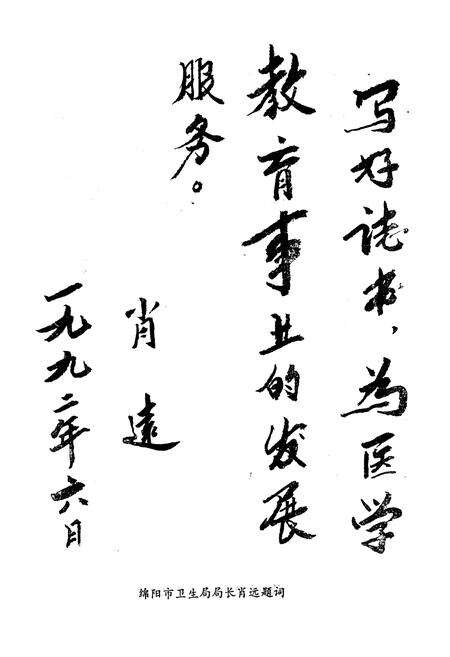 写好誌书，为医学
教育事业的发展
服务。
肖远
一九九二年六月
绵阳市卫生局局长肖远题词